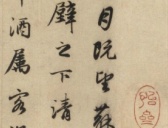 月既望蘇
壁之下清
酒属客